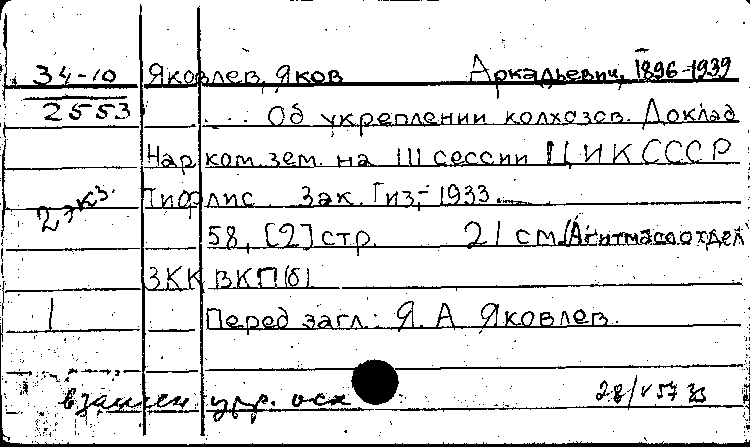 34-10 Яковлев, Яков Аркадьевич, 1896-1939
2553 ... Об укреплении колхозов. Доклад
Нар. ком. зем. на III сессии ЦИК СССР
2 экз. Тифлис. Зак. Гиз, 1933.
58, [2] стр. 21 см. (Агитмассотдел
ЗКК ВКП(б)
1 Перед загл.: Я. А. Яковлев.
взамен